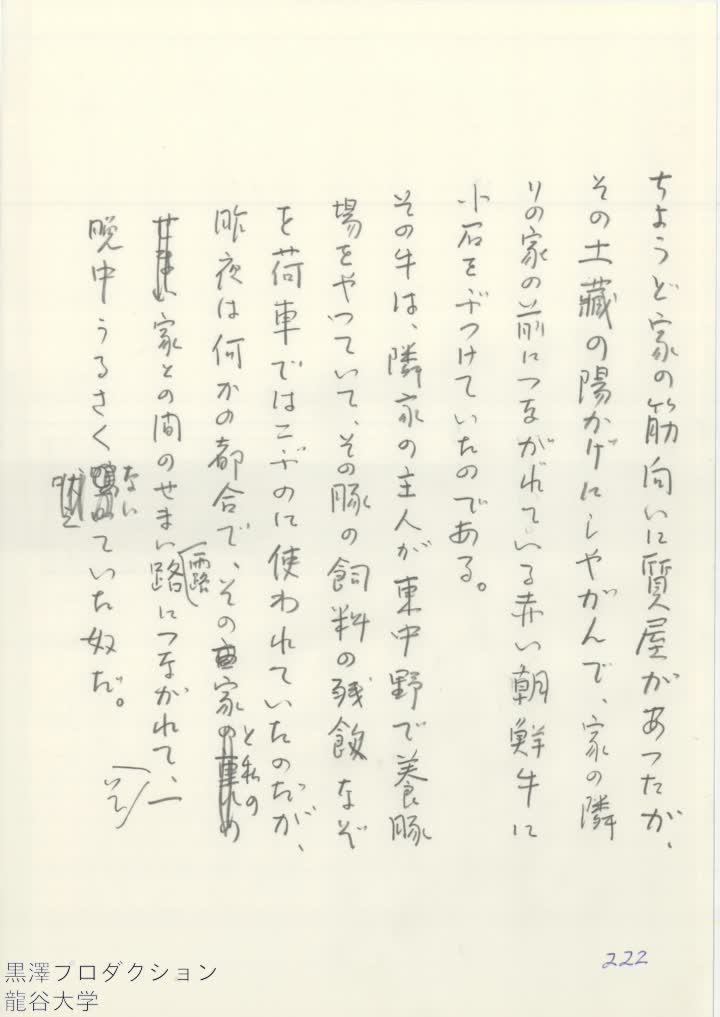 ちようど家の筋向いに質屋があつたが、
その土藏の陽かげにしやがんで、家の隣
りの家の前につながれている赤い朝鮮牛に
小石をぶつけていたのである。
その牛は、隣家の主人が東中野で養豚
場をやつていて、その豚の飼料の残飯なぞ
を荷車ではこぶのに使われていたのだが、
昨夜は何かの都合で、その家のと私の
家との間のせまい路(露路)につながれて、一
晩中うるさくないていた奴だ。
222
黒澤プロダクション
龍谷大学